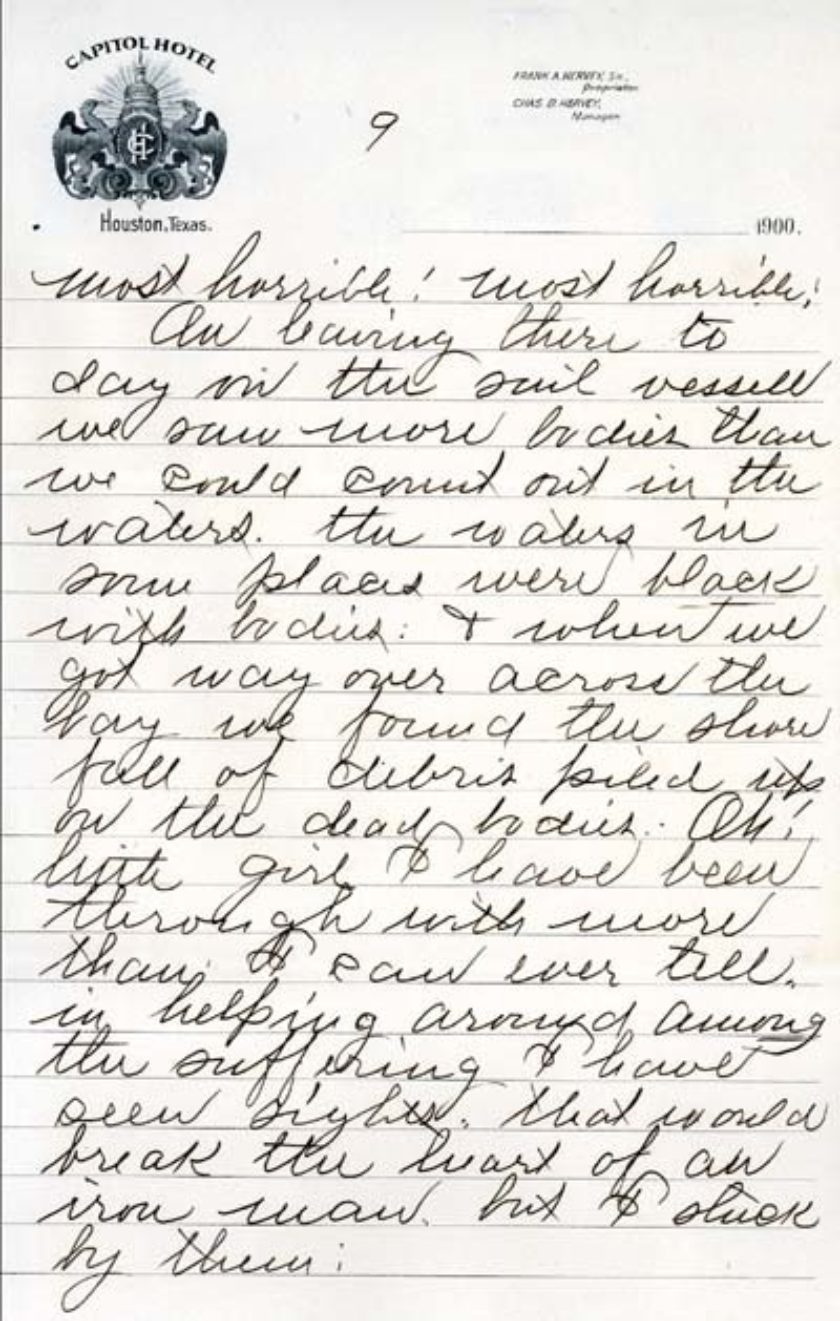 CAPITOL HOTEL
HC
Houston, Texas.
FRANK A. HERVEY, Sr.,
Proprietor
CHAS. D. HERVEY,
Manager
9
1900.
most horrible! most horrible!
On leaving there to
day in the sail vessell
we saw more bodies than
we could count out in the
waters. the waters in
some places were black
with bodies: & when we
got way over across the
bay we found the shore
full of debris piled up
on the dead bodies. Oh!
little girl I have been
through with more
than I can ever tell.
in helping around among
the suffering I have
seen sights. that would
break the heart of an
iron man. but I stuck
by them: